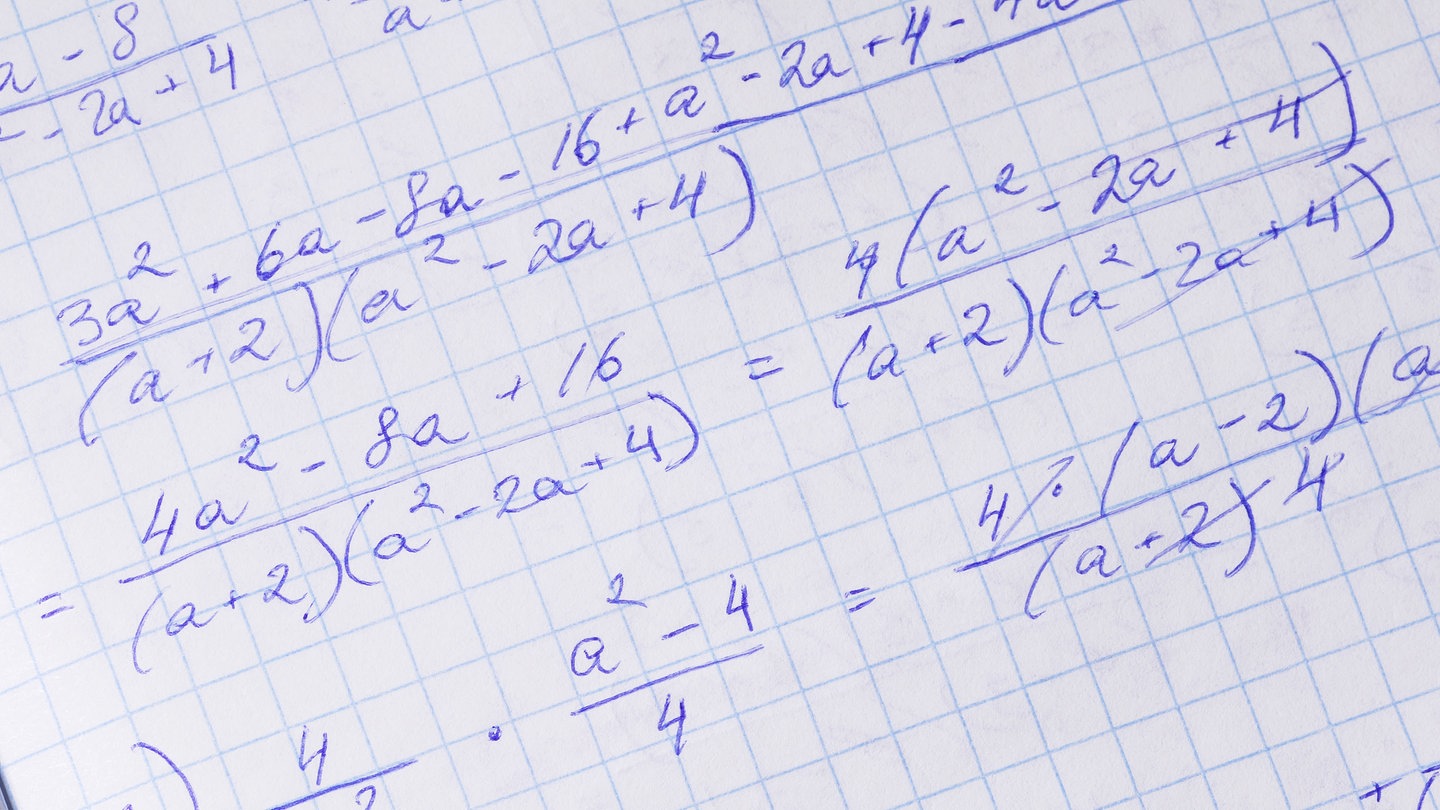 a - 8
- 2a + 4
a
3a² + 6a - 8a - 16 + a² - 2a + 4 - 4a
(a + 2)(a² - 2a + 4)
4a² - 8a + 16
= (a + 2)(a² - 2a + 4)
4(a² - 2a + 4)
= (a + 2)(a² - 2a + 4)
4
· a² - 4
4
4 · (a - 2)(a
= (a + 2) 4